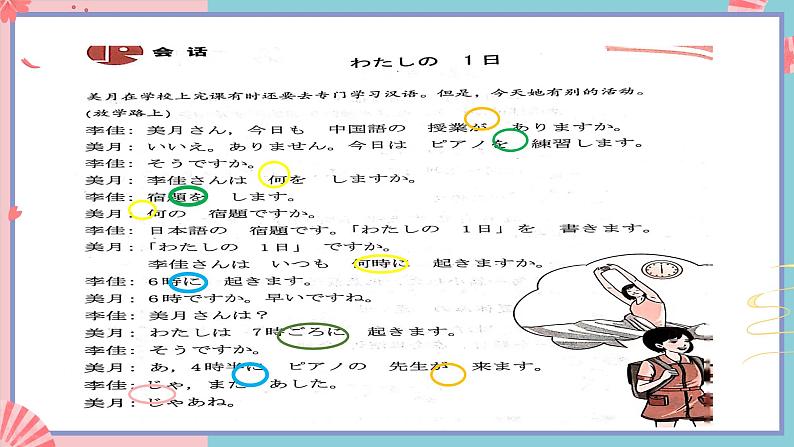 会 话
わたしの 1日
美月在学校上完课有时还要去专门学习汉语。但是，今天她有别的活动。
(放学路上)
李佳：美月さん，今日も 中国語の 授業が ありますか。
美月：いいえ。ありません。今日は ピアノを 練習します。
李佳：そうですか。
美月：李佳さんは 何を しますか。
李佳：宿題を します。
美月：何の 宿題ですか。
李佳：日本語の 宿題です。「わたしの 1日」を 書きます。
美月：「わたしの 1日」 ですか。
李佳さんは いつも 何時に 起きますか。
李佳：6時に 起きます。
美月：6時ですか。早いですね。
李佳：美月さんは？
美月：わたしは 7時ごろに 起きます。
李佳：そうですか。
美月：あ，4時半に ピアノの 先生が 来ます。
李佳：じゃ，また あした。
美月：じゃあね。